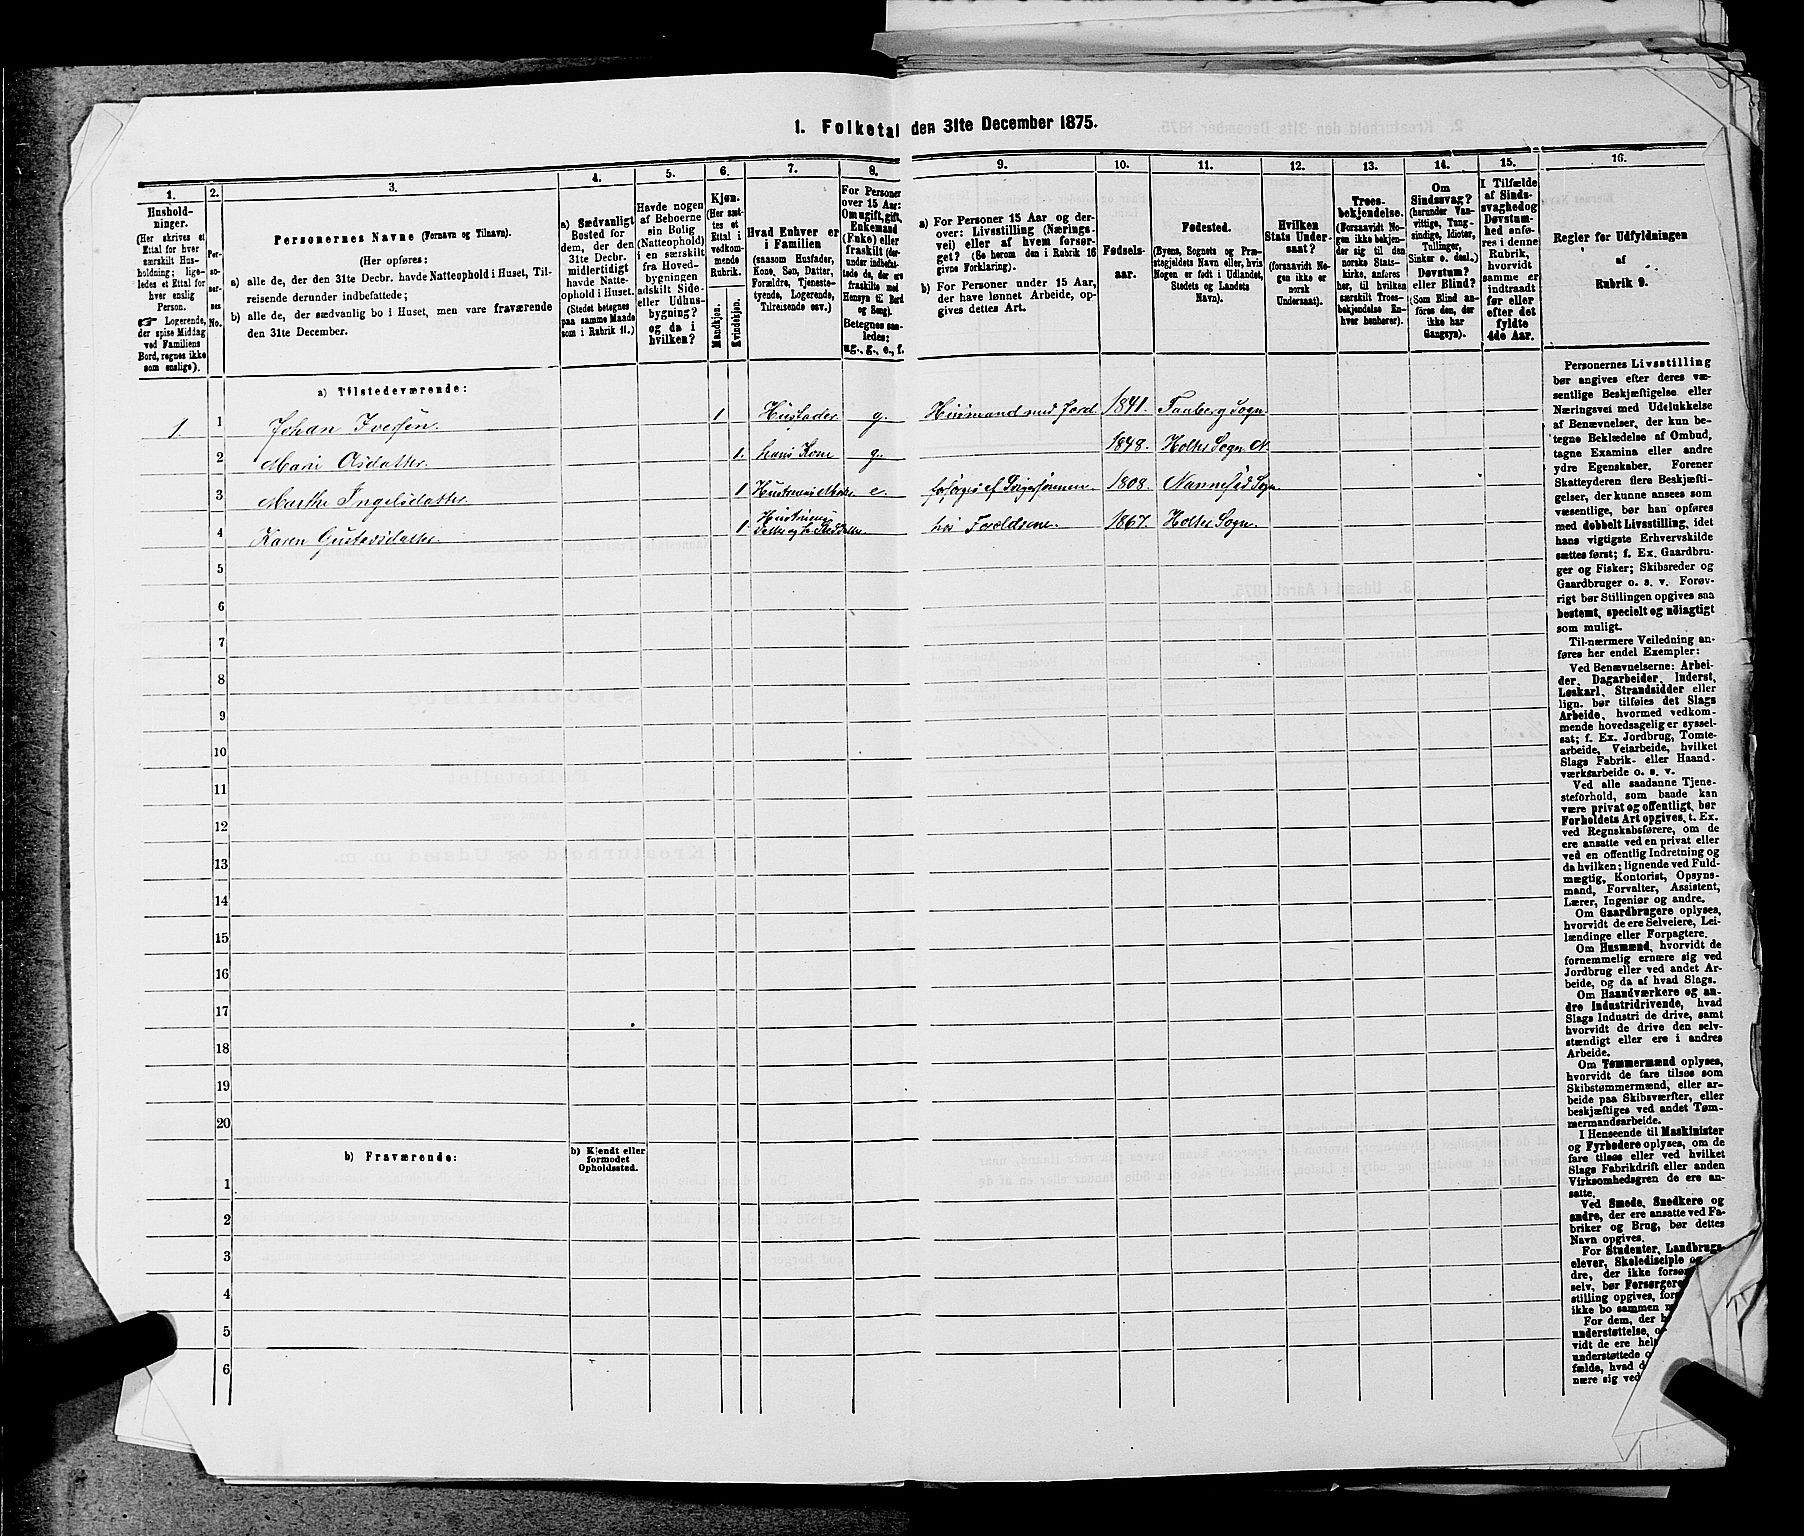 1. Folketal den 31te December 1875.
1.
Hushold-
ninger.
(Her skrives et
Ettal for hver
særskilt Hus-
holdning; lige-
ledes et Ettal for
hver enslig
Person.
☞ Logerende,
der spise Middag
ved Familiens
Bord, regnes ikke
som enslige).
2.
Per-
so-
ner-
nes
No.
3.
Personernes Navne (Fornavn og Tilnavn).
(Her opføres:
a) alle de, der den 31te Decbr. havde Natteophold i Huset, Til-
reisende derunder indbefattede;
b) alle de, der sædvanlig bo i Huset, men vare fraværende
den 31te December.
4.
a) Sædvanligt
Bosted for
dem, der den
31te Decbr.
midlertidigt
havde Natte-
ophold i Huset.
(Stedet betegnes
paa samme Maade
som i Rubrik 11.)
5.
Havde nogen
af Beboerne
sin Bolig
(Natteophold)
i en særskilt
fra Hoved-
bygningen
adskilt Side-
eller Udhus-
bygning?
og da i
hvilken?
6.
Kjøn.
(Her sæt-
tes et
Ettal i
vedkom-
mende
Rubrik.
Mandkjøn.
Kvindekjøn.
7.
Hvad Enhver er
i Familien
(saasom Husfader,
Kone, Søn, Datter,
Forældre, Tjeneste-
tyende, Logerende,
Tilreisende osv.)
8.
For Personer
over 15 Aar:
Om ugift, gift,
Enkemand
(Enke) eller
fraskilt (der-
under indbefat-
tede de, der ere
fraskilte med
Hensyn til Bord
og Seng).
Betegnes saa-
ledes:
ug., g., e., f.
9.
a) For Personer 15 Aar og der-
over: Livsstilling (Nærings-
vei) eller af hvem forsør-
get? (Se herom den i Rubrik 16
givne Forklaring).
b) For Personer under 15 Aar,
der have lønnet Arbeide, op-
gives dettes Art.
10.
Fødsels-
aar.
11.
Fødested.
(Byens, Sognets og Præ-
stegjeldets Navn eller, hvis
Nogen er født i Udlandet,
Stedets og Landets
Navn).
12.
Hvilken
Stats Under-
saat?
(forsaavidt No-
gen ikke er
norsk
Undersaat).
13.
Troes-
bekjendelse.
(Forsaavidt No-
gen ikke bekjen-
der sig til den
norske Stats-
kirke, anføres
her, til hvilken
særskilt Troes-
bekjendelse En-
hver henhører).
14.
Om
Sindssvag?
(herunder Van-
vittige, Tung-
sindige, Idioter,
Tullinger,
Sinker o. desl.)
Døvstum?
eller Blind?
(Som Blind an-
føres den, der
ikke har
Gangsyn).
15.
I Tilfælde
af Sinds-
svaghed og
Døvstum-
hed anfø-
res i denne
Rubrik,
hvorvidt
samme er
indtraadt
før eller
efter det
fyldte
4de Aar.
16.
Regler for Udfyldningen
af
Rubrik 9.
a) Tilstedeværende:
1. 1 Johan Iversen. 1. Husfader g. Huusmand med Jord. 1841. Faaberg Sogn
2 Marie Olsdatter. 1. hans Kone g. 1848. Holter Sogn N.
3 Marthe Ingelsdatter 1 Hustruens Moder e. forsørges af Svigersønnen. 1808. Nannestad Sogn
4 Karen Gustavsdatter 1. Hustruens hos Forældrene. 1867. Holter Sogn.
5
6
7
8
9
10
11
12
13
14
15
16
17
18
19
20
b) Fraværende:
b) Kjendt eller
formodet
Opholdssted.
1
2
3
4
5
6
Personernes Livsstilling
bør angives efter deres væ-
sentlige Beskjæftigelse eller
Næringsvei med Udelukkelse
af Benævnelser, der kun be-
tegne Beklædelse af Ombud,
tagne Examina eller andre
ydre Egenskaber. Forener
Skatteyderen flere Beskjæfti-
gelser, der kunne ansees som
væsentlige, bør han opføres
med dobbelt Livsstilling, idet
hans vigtigste Erhvervskilde
sættes først; f. Ex. Gaardbru-
ger og Fisker; Skibsreder og
Gaardbruger o. s. v. Forøv-
rigt bør Stillingen opgives saa
bestemt, specielt og nøiagtigt
som muligt.
Til nærmere Veiledning an-
føres her endel Exempler:
Ved Benævnelserne: Arbei-
der, Dagarbeider, Inderst,
Løskarl, Strandsidder eller
lign. bør tilføies det Slags
Arbeide, hvormed vedkom-
mende hovedsagelig er syssel-
sat; f. Ex. Jordbrug, Tomte-
arbeide, Veiarbeide, hvilket
Slags Fabrik- eller Haand-
værksarbeide o. s. v.
Ved alle saadanne Tjene-
steforhold, som baade kan
være privat og offentligt, bør
Forholdets Art opgives, t. Ex.
ved Regnskabsførere, om de
ere ansatte ved en privat eller
ved en offentlig Indretning og
da hvilken; lignende ved Fuld-
mægtig, Kontorist, Opsyns-
mand, Forvalter, Assistent,
Lærer, Ingeniør og andre.
Om Gaardbrugere oplyses,
hvorvidt de ere Selveiere, Lei-
lændinge eller Forpagtere.
Om Husmænd, hvorvidt de
fornemmelig ernære sig ved
Jordbrug eller ved andet Ar-
beide, og da af hvad Slags.
Om Haandværkere og an-
dre Industridrivende, hvad
Slags Industri de drive, samt
hvorvidt de drive den selv-
stændigt eller ere i andres
Arbeide.
Om Tømmermænd oplyses,
hvorvidt de fare tilsøs som
Skibstømmermænd, eller ar-
beide paa Skibsværfter, eller
beskjæftiges ved andet Tøm-
mermandsarbeide.
I Henseende til Maskinister
og Fyrbødere oplyses, om de
fare tilsøs eller ved hvilket
Slags Fabrikdrift eller anden
Virksomhedsgren de ere an-
satte.
Ved Smede, Snedkere og
andre, der ere ansatte ved Fa-
briker og Brug, bør dettes
Navn opgives.
For Studenter, Landbrugs-
elever, Skoledisciple og
dre, der ikke forsør
selv, bør Forsørgere
stilling opgives, for
ikke bo sammen
For dem, der
understøttelse,
vidt de ere hel
understøttede
fælde, hvad
nære sig ved